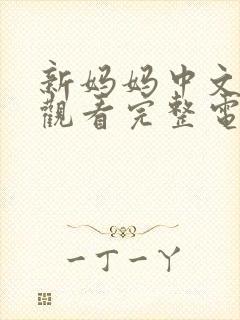 新妈妈中文
觀看完整電
一丁一丫